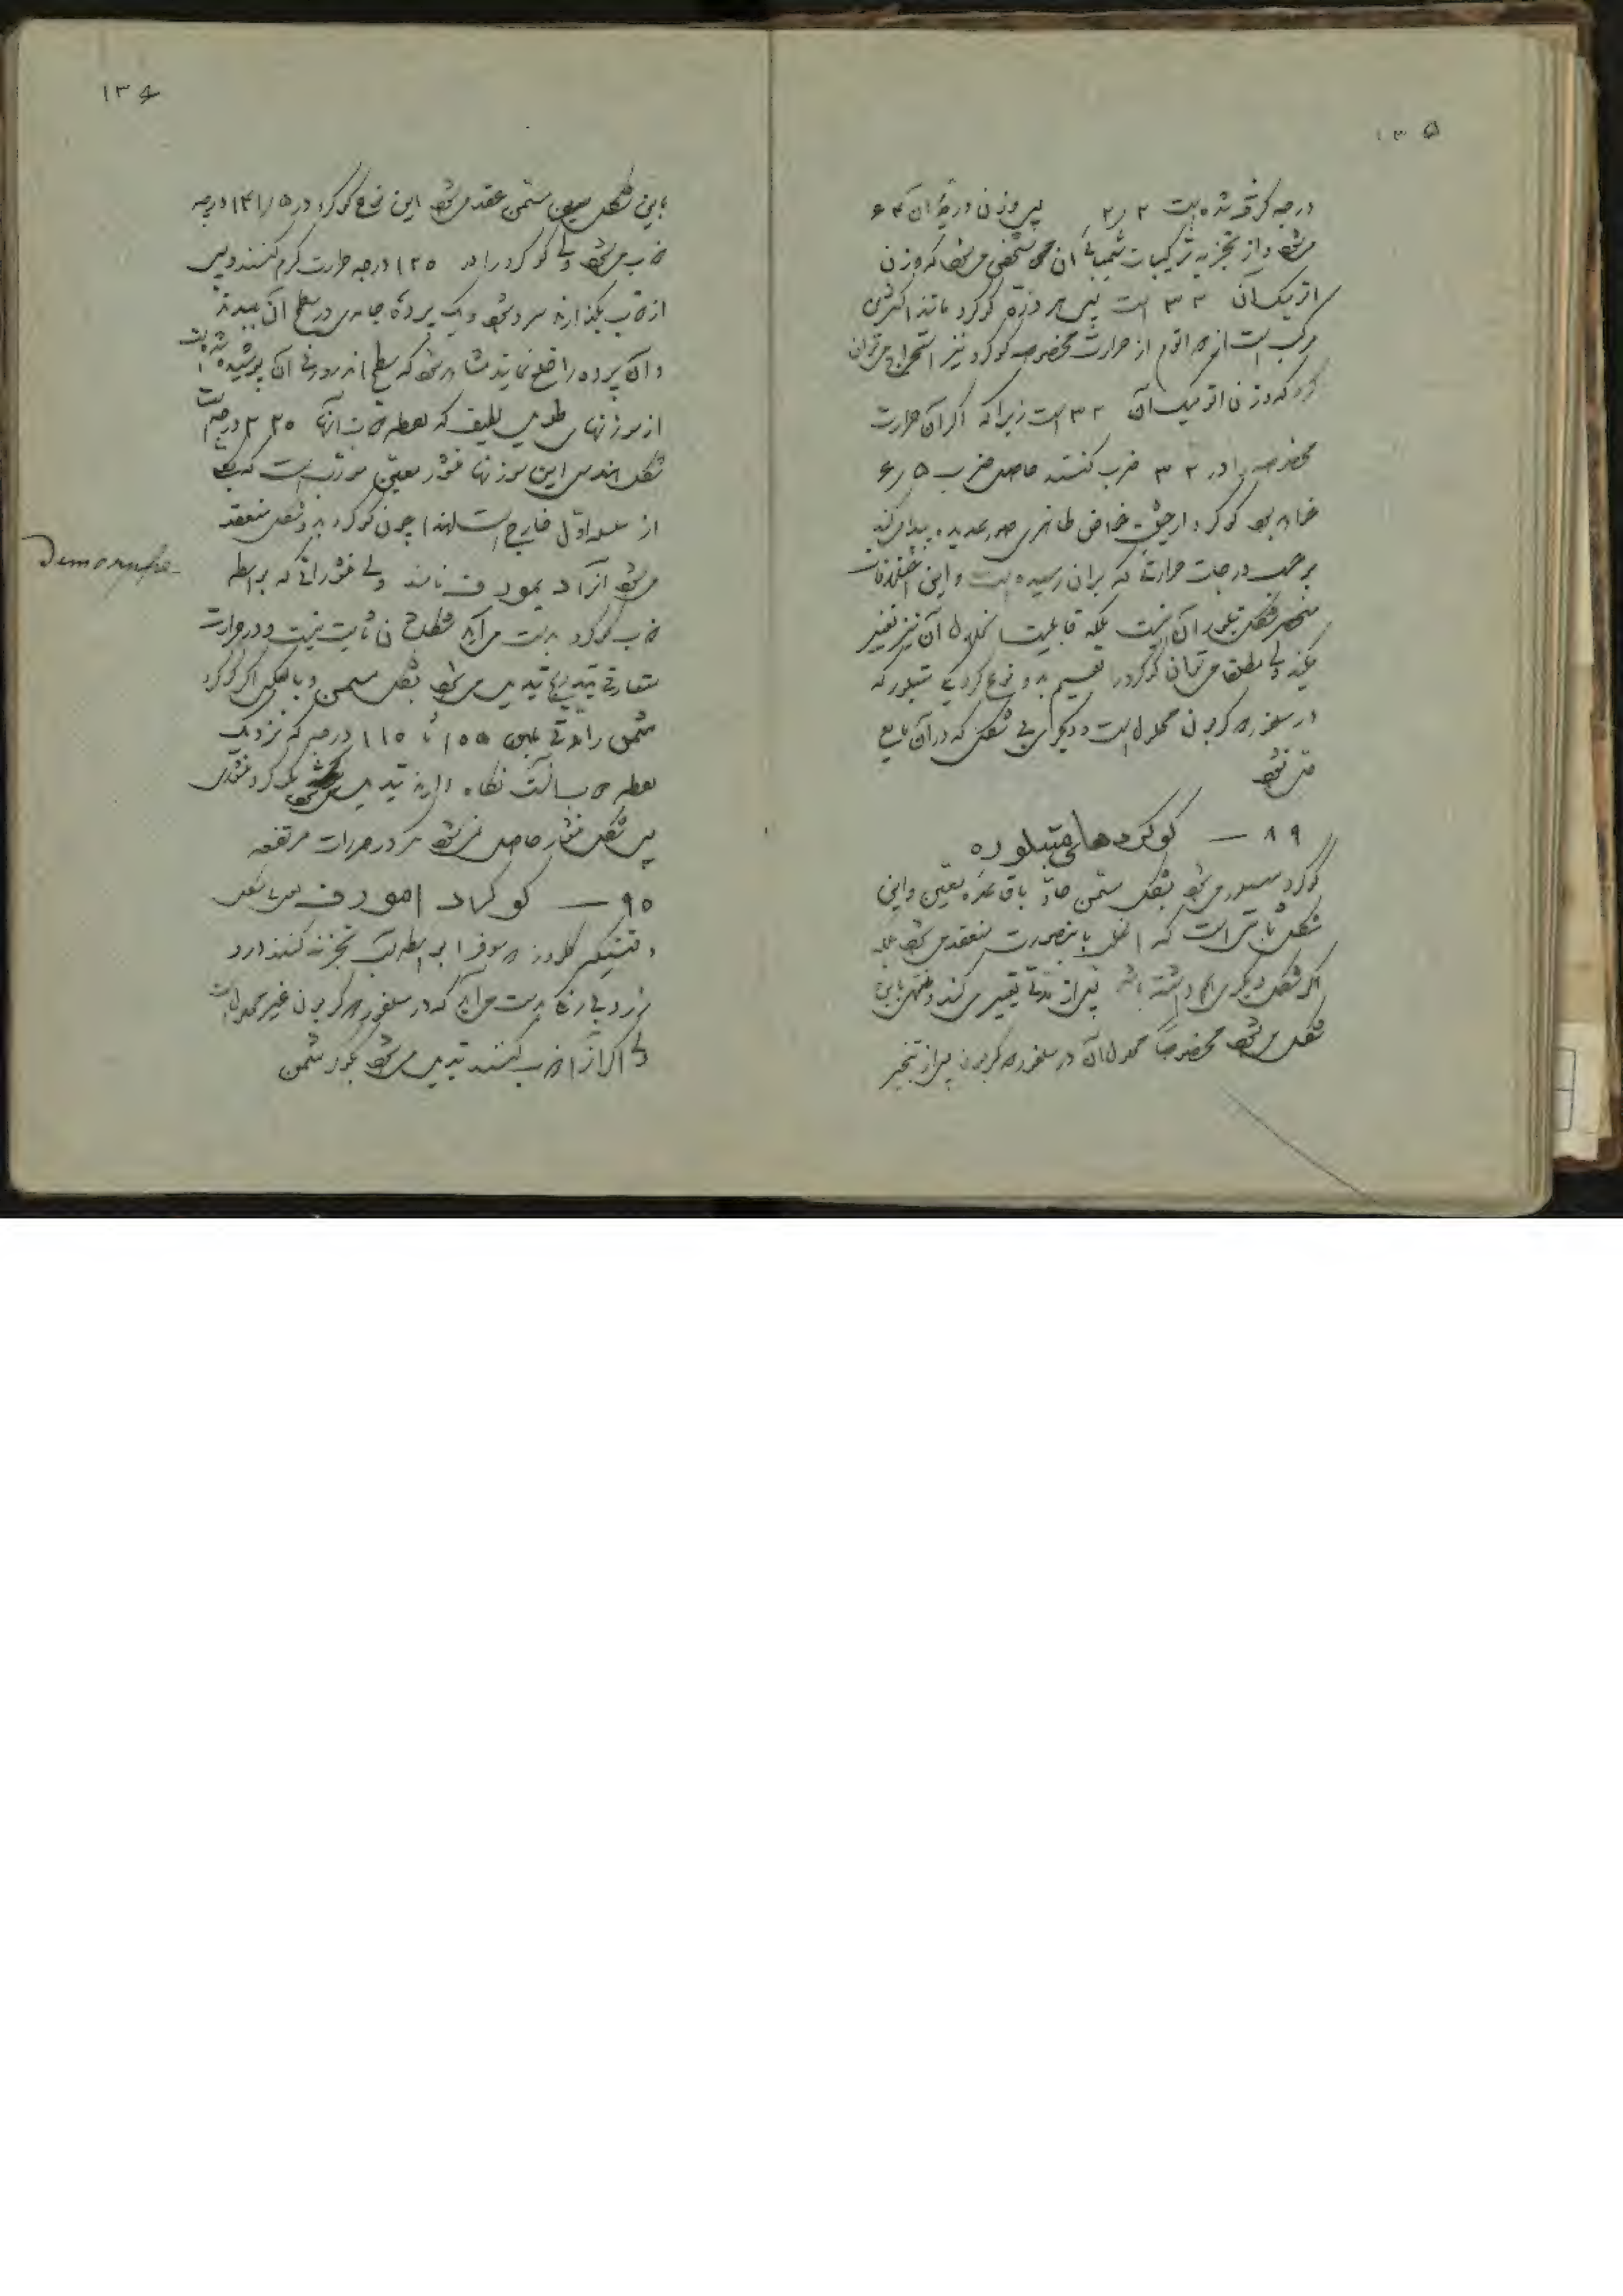 ۱۳۵
درجه گرفته شده است ۲٫۲ پس وزن ذره آن ۶۴
میشود و از تجزیه ترکیبات شیمیائی آن هم مشخص میشود که وزن
اتمیک آن ۳۲ است پس هر ذره گوگرد مانند اکثری
مرکب است از ۲ اتم از حرارت مخصوصه گوگرد نیز استخراج میتوان
کرد که وزن اتمیک آن ۳۲ است زیرا که اگر آن حرارت
مخصوصه را در ۳۲ ضرب کنند حاصل ضرب ۶٫۵
خواهد بود گوگرد از حیث خواص ظاهری صور عدیده پیدا میکند
برحسب درجات حرارتی که بر آن رسیده است و این اختلافات
منحصر بشکل تبلور آن نیست بلکه قابلیت انحلال آن نیز تغییر
میکند ولی مطلقا میتوان گوگرد را تقسیم بدو نوع کرد یکی متبلور که
در سلفور کربون محلول است و دیگری بی شکل که در آن مایع
حل نمیشود
۸۹ — گوگردهای متبلوره
گوگرد متبلور میشود بشکل مثمن حاد با قاعده معین و این
شکل ثابت تر است که اغلب باینصورت منعقد میشود بلکه
اگر شکل دیگری هم داشته باشد پس از مدتی تغییر میکند و منتهی باین
شکل میشود مخصوصاً محلول آن در سلفور کربون پس از تبخیر
۱۳۶
باین شکل مثمن عقد میشود این نوع گوگرد در ۱۴۱٫۵ درجه
ذوب میشود ولی گوگرد را در ۱۲۰ درجه حرارت گرم کنند و پس
از ذوب بگذارند سرد شود و یک پرده جامدی در سطح آن ببندد
و آن پرده را قطع نمایند مشاهده میشود که سطح اندرونی آن پوشیده شده است
از سوزنهای طویل لطیف که نقطه ذوب آنها ۲۲۰ درجه است
شکل هندسی این سوزنها منشور معین مورب است که
از سلسله اول خارج است لهذا چون گوگرد بدو شکل منعقد
میشود آنرا دیمورف نامند ولی منشوراتی که بواسطه
Dimorphe
ذوب گوگرد بدست میآید شکلشان ثابت نیست و در حرارت
متعارفی بتدریج تبدیل میشود بشکل مثمن و بالعکس اگر گوگرد
مثمن را مدتی مابین ۱۰۵ تا ۱۱۰ درجه که نزدیک
نقطه ذوب آنست نگاه دارند تبدیل میشود بگوگرد منشوری
پس شکل منشور حاصل نمیشود مگر در حرارات مرتفعه
۹۰ — گوگرد امورف یا بی شکل
وقتیکه کلرور سوفر را بواسطه آب تجزیه کنند گرد
زرد بی رنگی بدست میآید که در سلفور کربون غیر محلول است
ولی اگر آنرا ذوب کنند تبدیل میشود بگوگرد مثمن